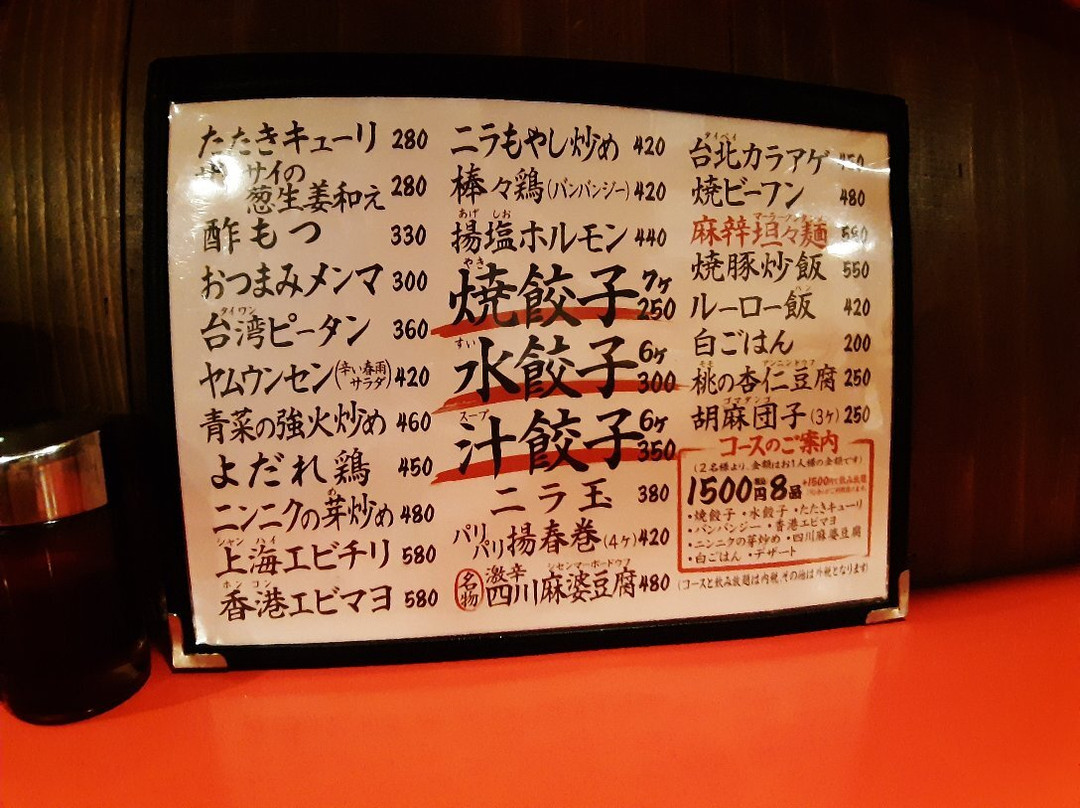 たたきキューリ 280
サイの
葱生姜和え 280
酢もつ 330
おつまみメンマ 300
タイワン
台湾ピータン 360
ヤムウンセン(辛い春雨サラダ) 420
青菜の強火炒め 460
よだれ鶏 450
め
ニンニクの芽炒め 480
シャン ハイ
上海エビチリ 580
ホン コン
香港エビマヨ 580
ニラもやし炒め 420
棒々鶏(バンバンジー) 420
あげ しお
揚塩ホルモン 440
やき
焼餃子 7ヶ 250
すい
水餃子 6ヶ 300
スープ
汁餃子 6ヶ 350
ニラ玉 380
パリパリ揚春巻(4ヶ) 420
シセンマーボードウフ
名物 激辛 四川麻婆豆腐 480
タイペイ
台北カラアゲ
焼ビーフン 480
麻辛坦々麺
焼豚炒飯 550
ハン
ルーロー飯 420
白ごはん 200
もも アンニンドウフ
桃の杏仁豆腐 250
ゴマダンゴ
胡麻団子(3ヶ) 250
コースのご案内
(2名様より、金額はお1人様の金額です)
1500円 8品 +1500円で飲み放題
・焼餃子・水餃子・たたきキューリ
・バンバンジー・香港エビマヨ
・ニンニクの芽炒め・四川麻婆豆腐
・白ごはん・デザート
(コースと飲み放題は内税、その他は外税となります)